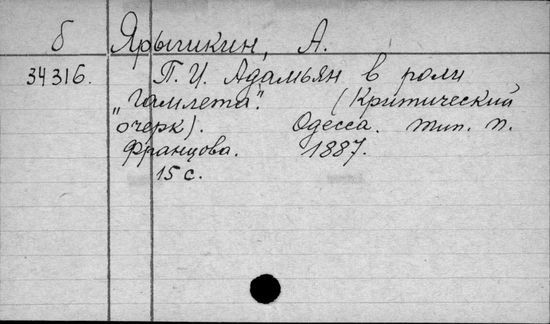 б Ярышкин, А.
34316. П. И. Адамьян в роли
„Гамлета". (Критический
очерк). Одесса. тип. П.
Францова. 1887.
15 с.